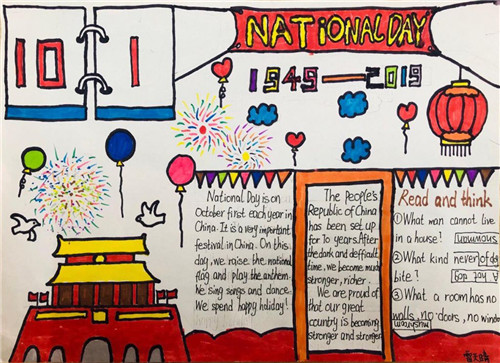 10 1
NATIONAL DAY
1949—2019
National Day is on
October first each year in
China. It is a very important
festival in China. On this
day, we raise the national
flag and play the anthem.
We sing songs and dance.
We spend happy holiday!
The People's
Republic of China
has been set up
for 70 years. After
the dark and defficult
time, we become much
stronger, richer.
We are proud of
that our great
country is becoming
stronger and stronger
Read and think
① What man cannot live
in a house?
snowman
② What kind never of dog
bite?
A hot dog
③ What a room has no
walls, no doors, no window
mushroom